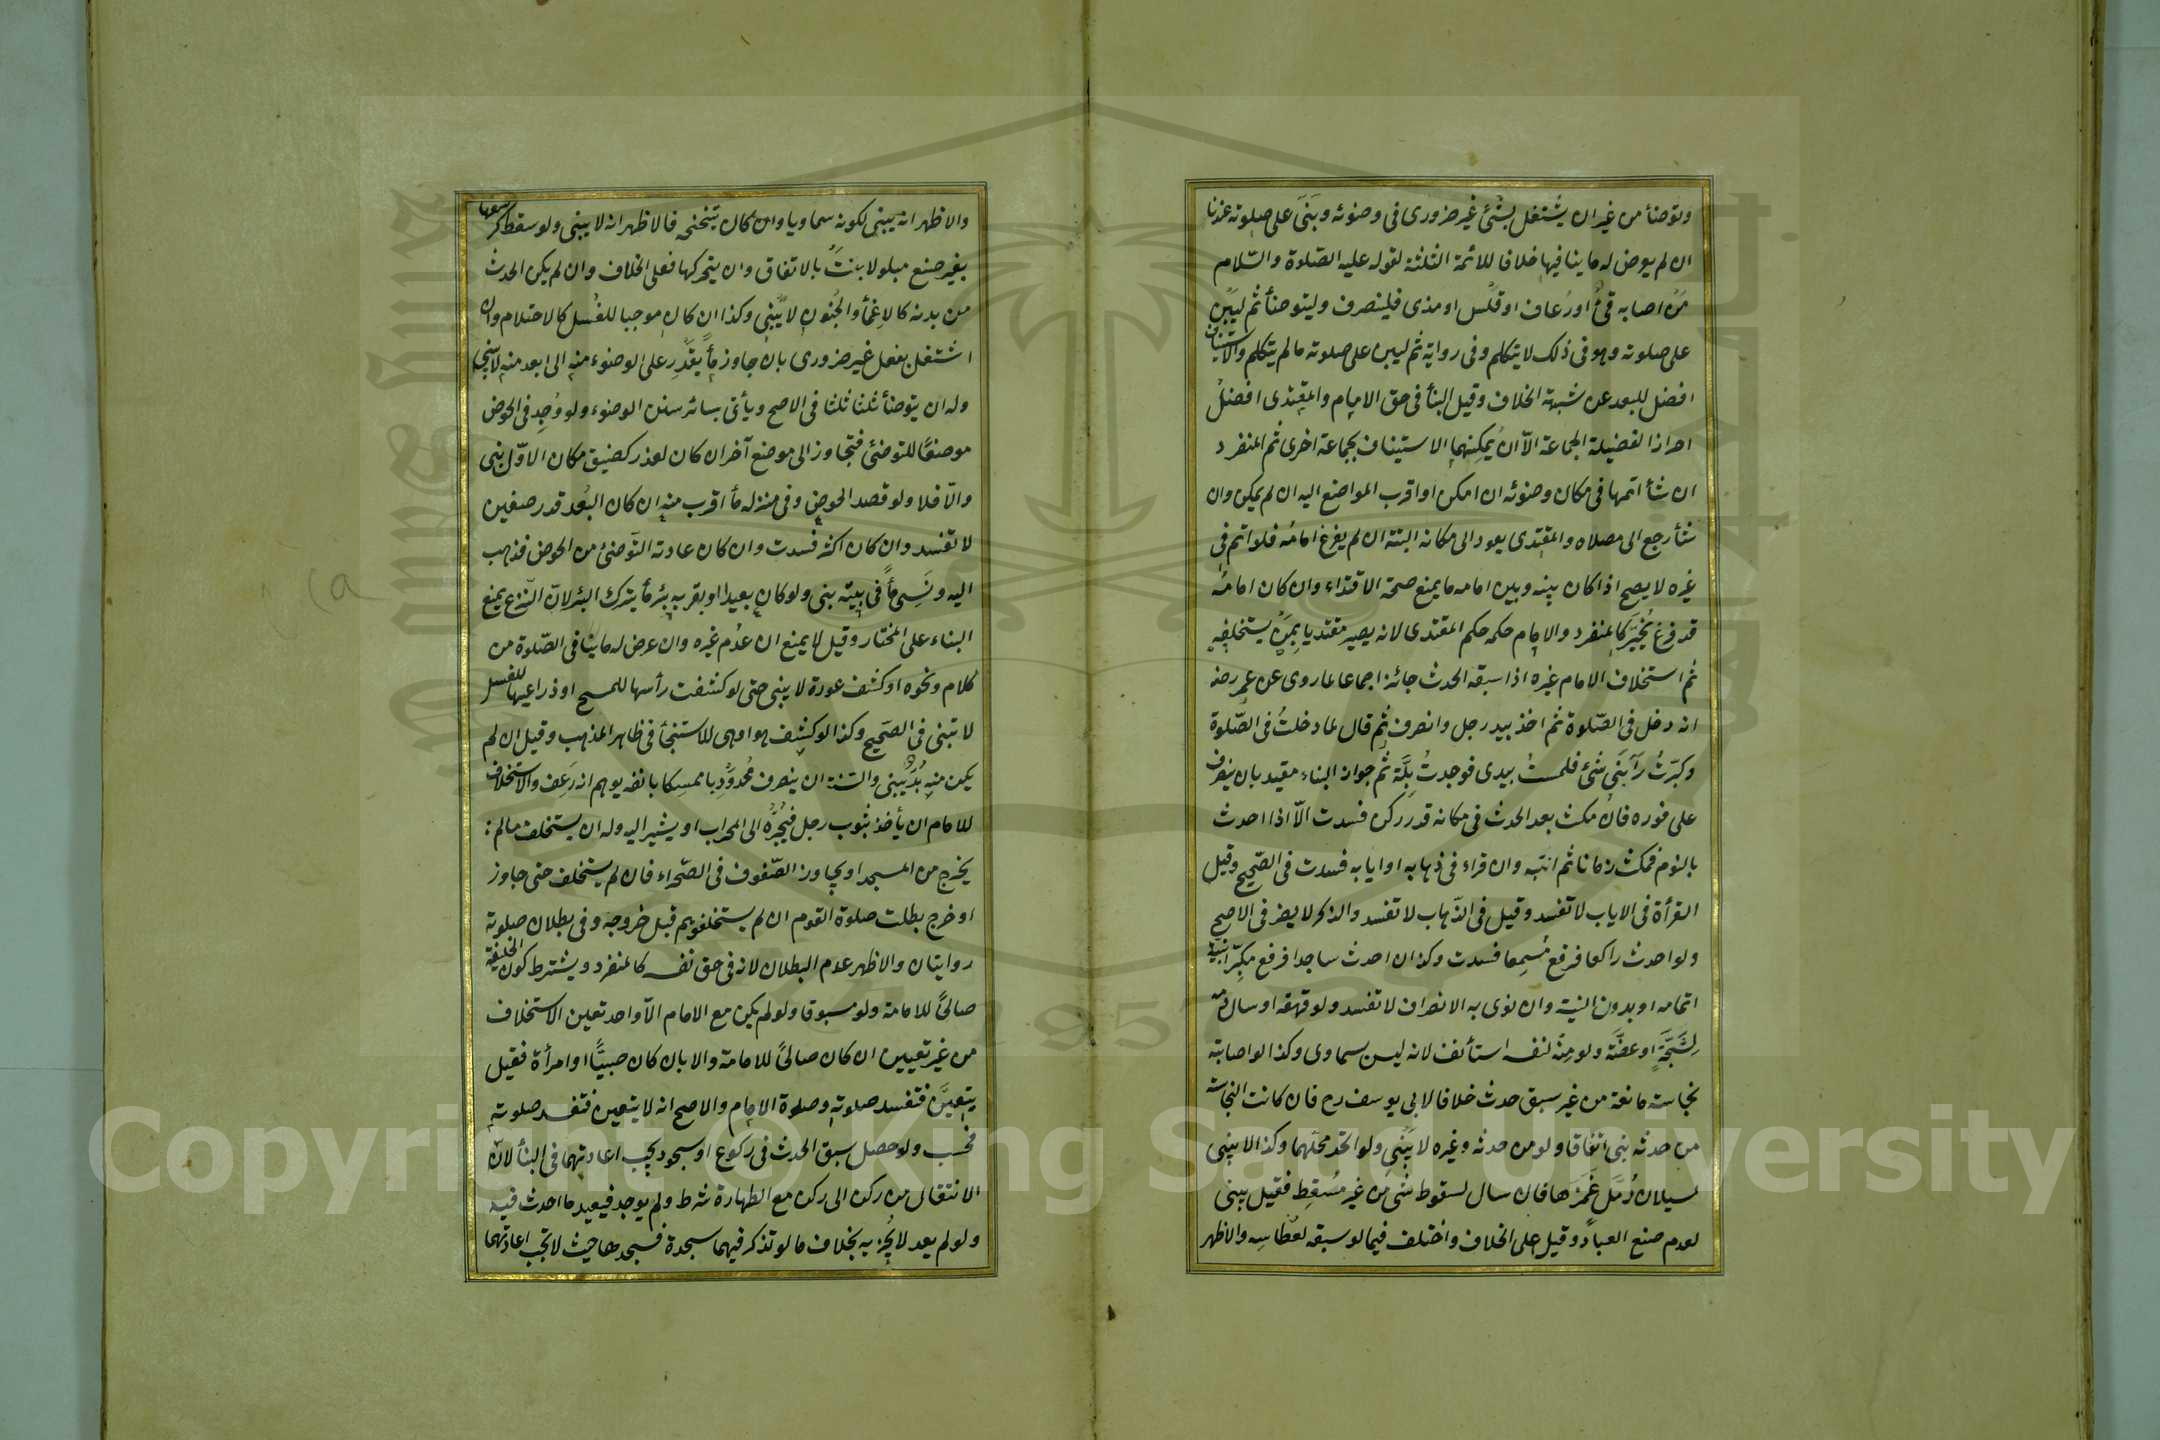 وتوضأ من غير ان يُشتغل بشئ غير ضرورى فى وضوئه وبَنَى على صلوته عندنا
ان لم يعرض له ما ينافيها خلافا للائمة الثلثة لقوله عليه الصّلوة والسّلام
مَن اصابه قئ او رُعاف او قلَس او مذى فلينصرف وليتوضأ ثم ليبن
على صلوته وهو فى ذلك لا يتكلم وفى رواية ثم ليبن على صلوته ما لم يتكلم والاستيناف
افضل للبعد عن شبهة الخلاف وقيل البنأ فى حق الامام والمقتدى افضل
احرازا لفضيلة الجماعة الاّ ان يُمكنهما الاستيناف بجماعة اخرى ثم المنفرد
ان شأ اتمها فى مكان وضوئه ان امكن او اقرب المواضع اليه ان لم يمكن وان
شأ رجع الى مصلاه والمقتدى يعود الى مكانه البتة ان لم يفرغ امامُه فلو اتم فى
غيره لا يصح اذا كان بينه وبين امامه ما يمنع صحة الاقتداء وان كان امامُه
قد فرغ يُخيّر كالمنفرد والامام حكمه حكم المقتدى لانه يصير مقتديا بمَن يستخلفه
ثم استخلاف الامام غيره اذا سبقه الحدث جائز اجماعا لما روى عن عمر رضه
انه دخل فى الصّلوة ثم اخذ بيد رجل وانصرف ثم قال لما دخلتُ فى الصّلوة
وكبّرتُ رآبَنى شئ فلمستُ بيدى فوجدتُ بِلَّة ثم جواز البناء مقيد بان ينصرف
على فوره فان مكث بعد الحدث فى مكانه قدر ركن فسدت الاّ اذا احدث
بالنوم فمكث زمانا ثم انتبه وان قراء فى ذهابه او ايابه فسدت فى الصّحيح وقيل
القرأة فى الاياب لا تفسد وقيل فى الذّهاب لا تفسد والذكر لا يضر فى الاصح
ولو احدث راكعا فرفع مُسمِعا فسدت وكذا ان احدث ساجدا فرفع مكبّرا بنيّة
اتمامه او بدون النيّة وان نوى به الانصراف لا تفسد ولو قهقه او سال دمه
لِشَجّةٍ او عضّة ولو منه لنفسه استأنف لانه ليس سماوى وكذا لو اصابته
نجاسة مانعة من غير سبق حدث خلافا لابى يوسف رح فان كانت النجاسة
من حدثه بنى اتفاقا ولو من حدثه وغيره لا يَبْنى ولو اتحد محلهما وكذا لا يبنى
لسيلان دُمَّل غَمَزَها فان سال لسقوط شئ من غير مُسْقِط فقيل يبنى
لعدم صنع العباد وقيل على الخلاف واختلف فيما لو سبقه لعُطاسه والاظهر
والاظهر انه يبنى لكونه سماويا وان كان بتنحنحه فالاظهر انه لا يبنى ولو سقط كرسفها
بغير صنع مبلولا بنتْ بالاتفاق وان بتحركها فعلى الخلاف وان لم يكن الحدث
من بدنه كالاغمأ والجُنون لا يَبْنى وكذا ان كان موجبا للغُسل كالاحتلام وان
اشتغل بفعل غير ضرورى بان جاوز مأً يقدر على الوضوء منه الى ابعد منه لا يبنى
وله ان يتوضأ ثلثا ثلثا فى الاصح ويأتى بسائر سنن الوضوء ولو وُجد فى الحوض
موضعًا للتوضئ فتجاوز الى موضع آخر ان كان لعذر كضيق مكان الاوّل بنى
والاّ فلا ولو قصد الحوض وفى منزله مأ اقرب منه ان كان البُعد قدر صفين
لا تفسد وان كان اكثر فسدت وان كان عادته التّوضئ من الحوض فذهب
اليه ونَسِى مأً فى بيته بنى ولو كان بعيدا وبقربه بئر مأ يترك البئر لانّ النّزع يمنع
البناء على المختار وقيل لا يمنع ان عدُم غيره وان عرض له ما ينا فى الصّلوة من
كلام ونحوه او كشف عورة لا يبنى حتى لو كشفت رأسها للمسح او ذراعيها للغسل
لا تبنى فى الصحيح وكذا لو كشف هو او هى للاستنجأ فى ظاهر المذهب وقيل ان لم
يكن منه بُدٌّ يبنى والسّنة ان ينصرف مُحْدَودِبا ممسكا بانفه يوهم انه رَعَف والاستخلاف
للامام ان يأخذ بثوب رجل فيَجُرّه الى المحراب او يشير اليه وله ان يستخلف ما لم
يخرج من المسجد او يجاوز الصّفوف فى الصّحراء فان لم يستخلف حتى جاوز
او خرج بطلت صلوة القوم ان لم يستخلفوا هم قبل خروجه وفى بطلان صلوته
روايتان والاظهر عدم البطلان لانه فى حق نفسه كالمنفرد ويشترط كون الخليفة
صالحًا للامامة ولو مسبوقا ولو لم يكن مع الامام الاّ واحد تعين الاستخلاف
من غير تعيين ان كان صالحًا للامامة والا بان كان صبيًّا او امرأة فقيل
يتعيّن فتفسد صلوته وصلوة الامام والاصح انه لا يتعين فتفسد صلوته
فحسب ولو حصل سبق الحدث فى ركوع او سجود يجب اعادتهما فى البنأ لانّ
الانتقال من ركن الى ركن مع الطهارة شرط ولم يوجد فيعيد ما احدث فيه
ولو لم يعد لا يُجزيه بخلاف ما لو تذكر فيهما سجدة فسجدها حيث لا تجب اعادتهما
Copyright © King Saud University
1957